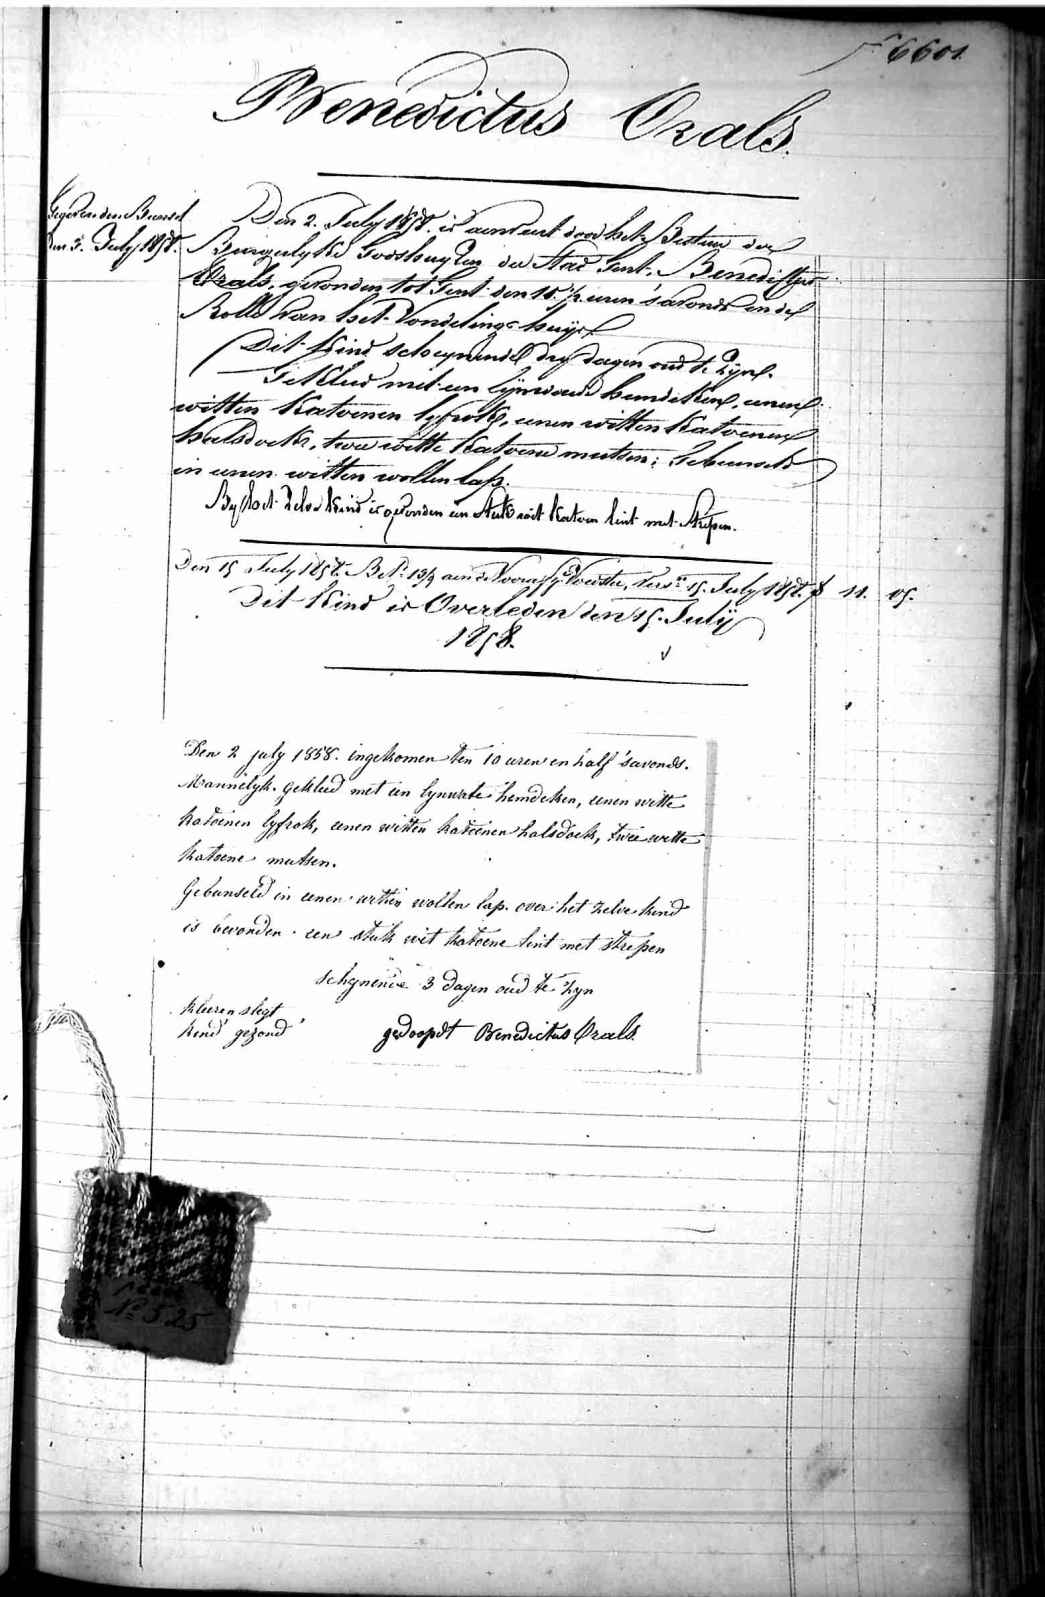 F° 6601
Benedictus Orals.
Den 3. July 1858.
Den 2. July 1858. is aenveird door het Bestuur der
Burgerlyke Godshuyzen der Stad Gent. Benedictus
Orals, gevonden tot Gent den 10 1/2 uren 's avonds in de
Rolle van het Vondelinge huys
Dit Kind schynende dry dagen oud te zyn.
Gekleed met een lynwaed hemdeken, eenen
witten Katoenen lyfrok, eenen witten Katoenen
halsdoek, twee witte Katoene mutsen; Gebunseld
in eenen witten wollen lap.
By het zelve Kind is gevonden een Stuk wit Katoen lint met Strepen.
Den 15 July 1858. Bet. aen de Voedster, 15. July 1858. f 11. 05.
Dit Kind is Overleden den 15. July
1858.
Den 2 july 1858. ingekomen ten 10 uren en half 's avonds.
Mannelyk. gekleed met een lynwate hemdeken, eenen witte
katoenen lyfrok, eenen witten katoenen halsdoek, twee witte
katoene mutsen.
Gebunseld in eenen witten wollen lap. over het zelve kind
is bevonden een stuk wit katoene lint met strepen
schynende 3 dagen oud te zyn
kleeren slegt
kind gezond gedoopt Benedictus Orals.
N° 525